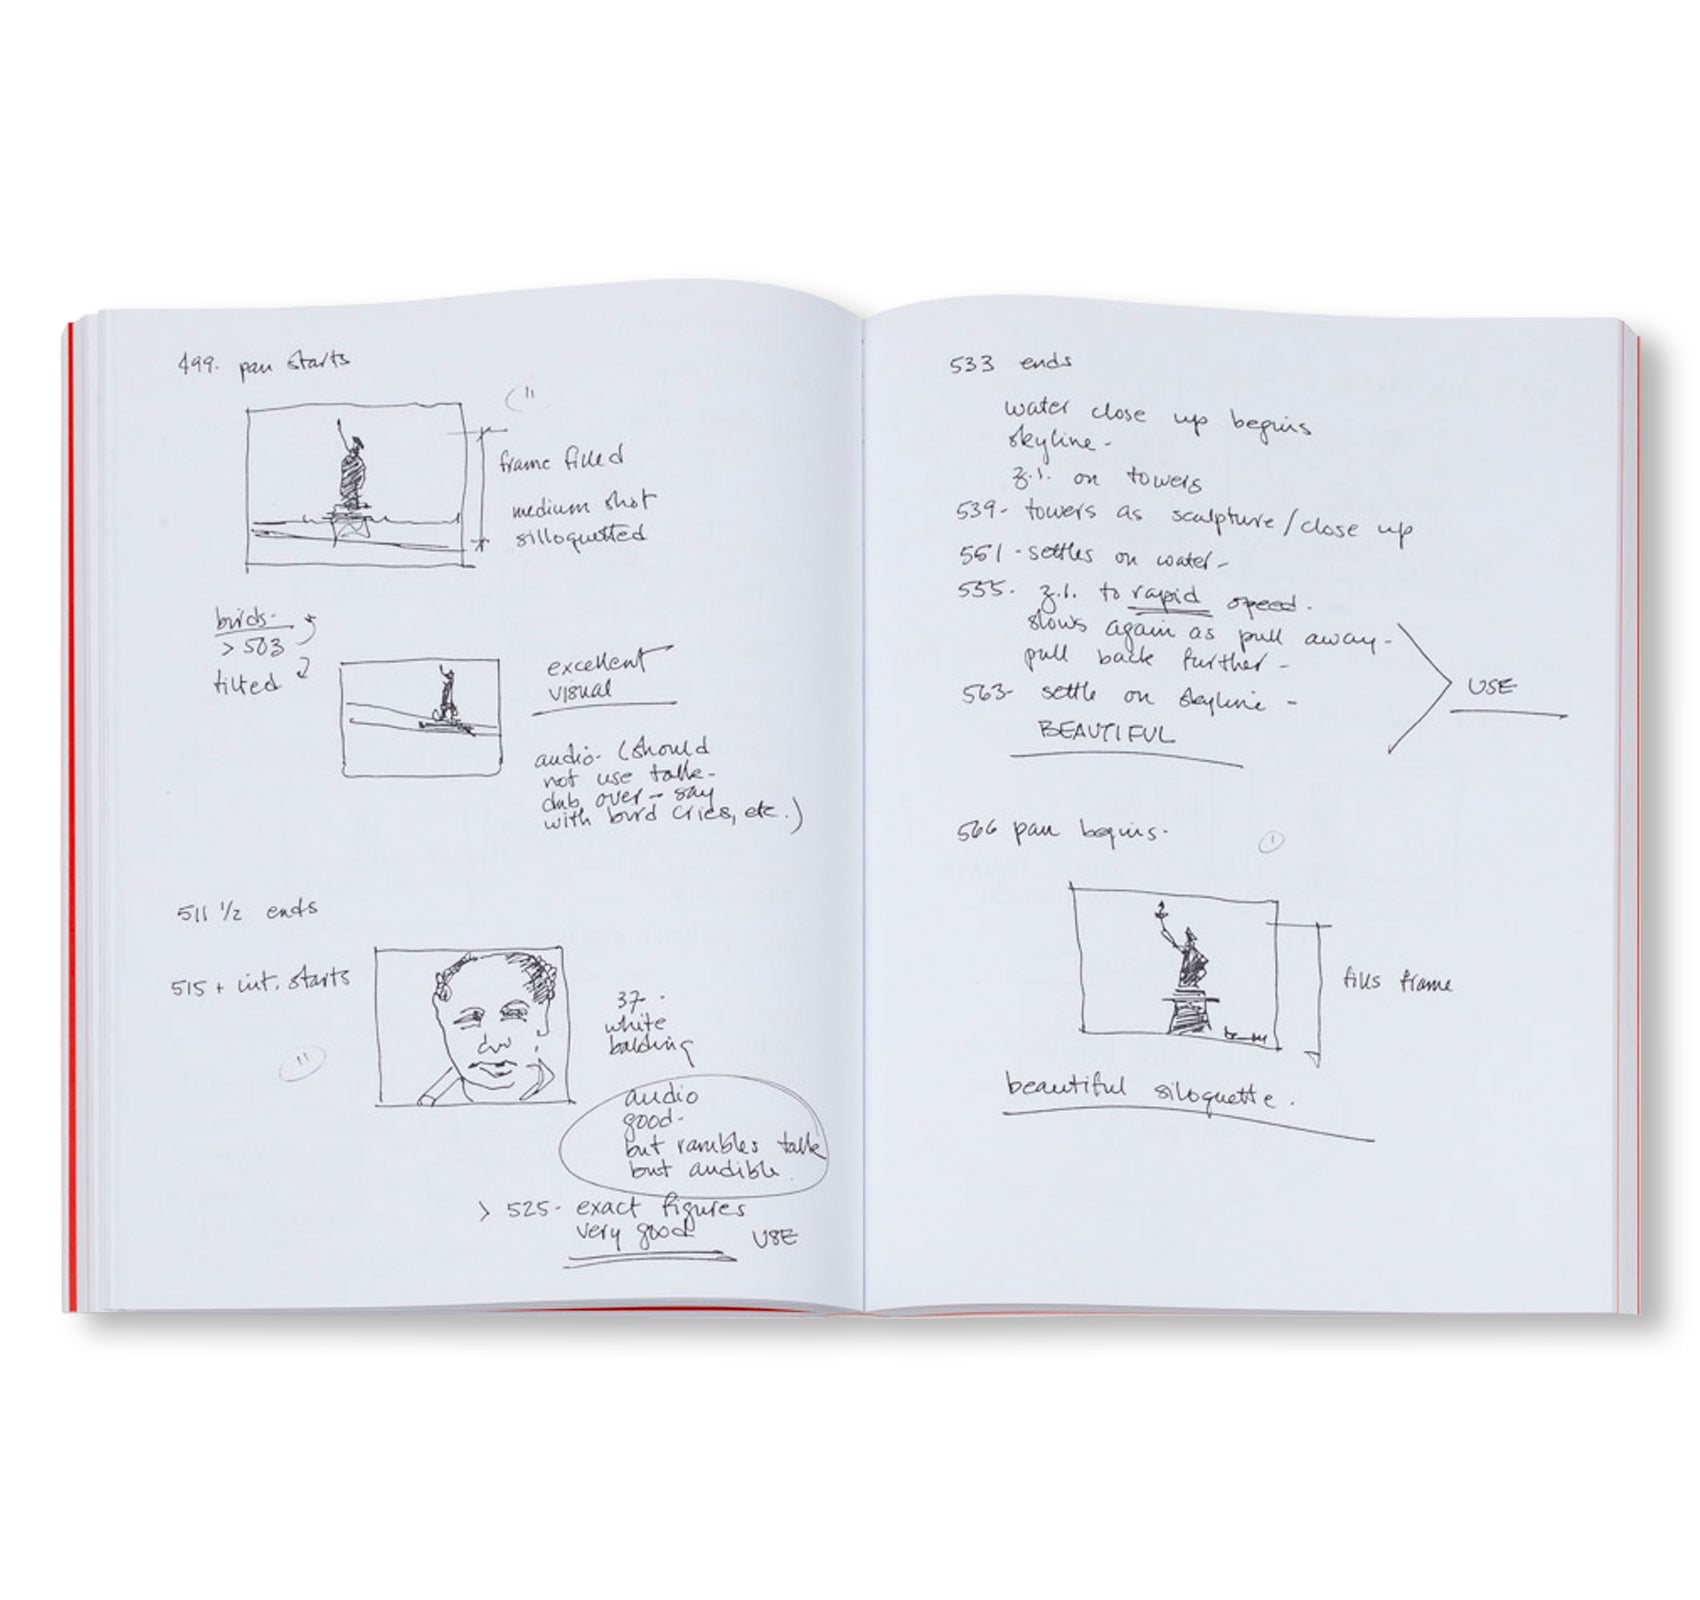 499. pan starts
frame filled
medium shot
silloquetted
birds-
> 503
tilted
excellent
visual
audio- (should
not use talk-
dub over - say
with bird cries, etc.)
511 1/2 ends
515 + int. starts
37.
white
balding
audio
good-
but rambles talk
but audible.
> 525- exact figures
very good USE
533 ends
water close up begins
skyline-
z.i. on towers
539- towers as sculpture/close up
551 - settles on water-
555- z.i. to rapid speed.
slows again as pull away-
pull back further-
563- settle on skyline -
BEAUTIFUL
USE
566 pan begins-
fills frame
beautiful siloquette.